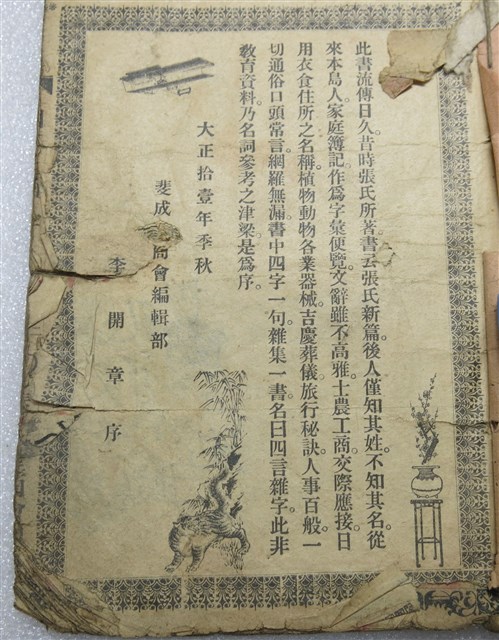 此書流傳日久。昔時張氏所著。書云張氏新篇。後人僅知其姓。不知其名。從
來本島人。家庭簿記。作為字彙便覽。文辭雖不高雅。士農工商。交際應接。日
用衣食住所之名稱。植物動物。各業器械。吉慶葬儀。旅行秘訣。人事百般。一
切通俗口頭常言。網羅無漏。書中四字一句。雜集一書。名曰四言雜字。此非
教育資料。乃名詞參考之津梁。是為序。
大正拾壹年季秋
斐成商會編輯部
李開章序